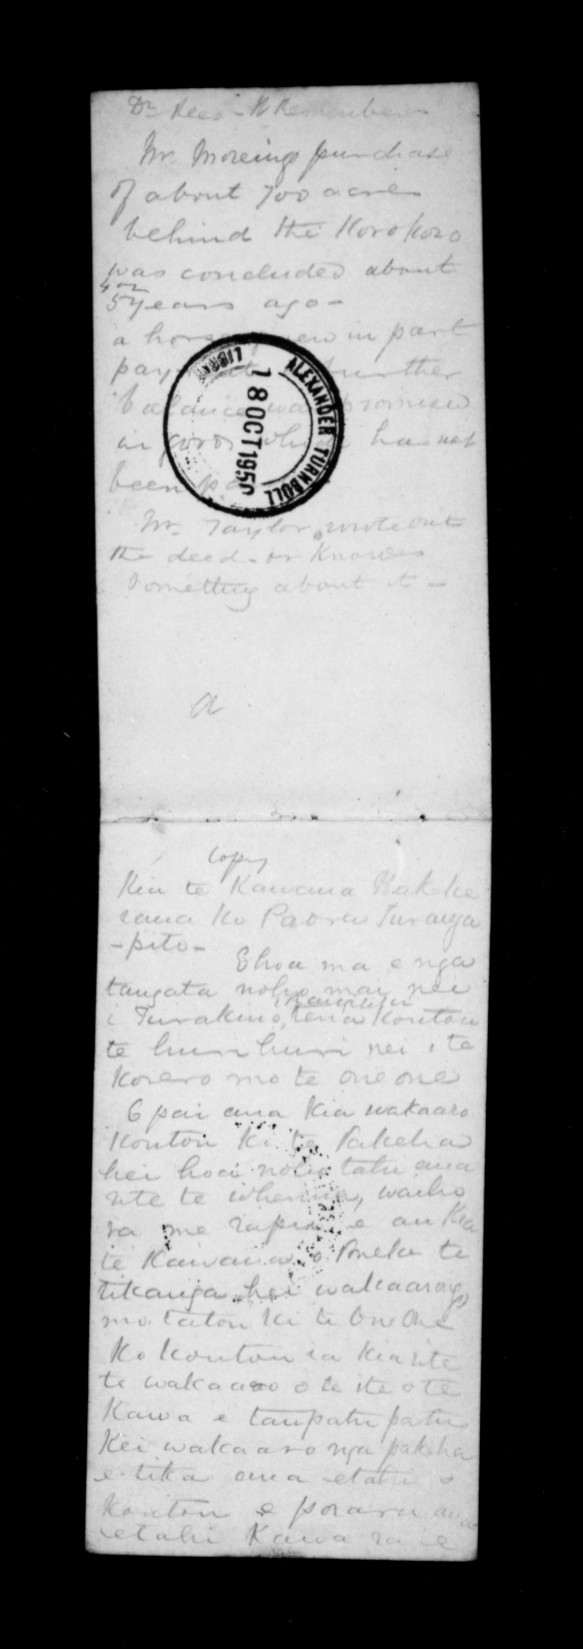 Dr Rees - Remember
Mr. Moreing's purchase
of about 700 acres
behind the Korokoro
was concluded about
4 or
5 years ago -
a horse in part
payment further
balance was promised
in goods which has not
been
Mr. Taylor wrote out
the deed - or knows
something about it -
ALEXANDER TURNBULL
LIBRARY
18 OCT 1950
a
Copy
Kia te Kawana Hakeke
raua ko Paora Turanga
-pito-
Ehoa ma e nga
tangata noho mai nei
i Turakino, tena koutou
te huri huri nei i te
korero mo te oneone
E pai ana kia wakaaro
koutou ki te Pakeha
hei hoa noho tatu ana
rite te whenua, waiho
ra me rapu e au kia
te Kawana o Poneke te
tikanga hei wakaaro
mo tatou ki te One One
Ko koutou ia kia rite
te wakaaro o te iti o te
Kawa e taupatupatu
Kei wakaaro nga pakeha
e tika ana etahi o
koutou e poraru ana
etahi Kawa ra e